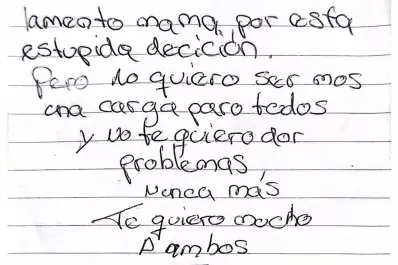 lamento mama, por esta
estupida decición.
Pero no quiero ser mas
una carga para todos
y no te quiero dar
problemas,
nunca más
Te quiero mucho
A ambos